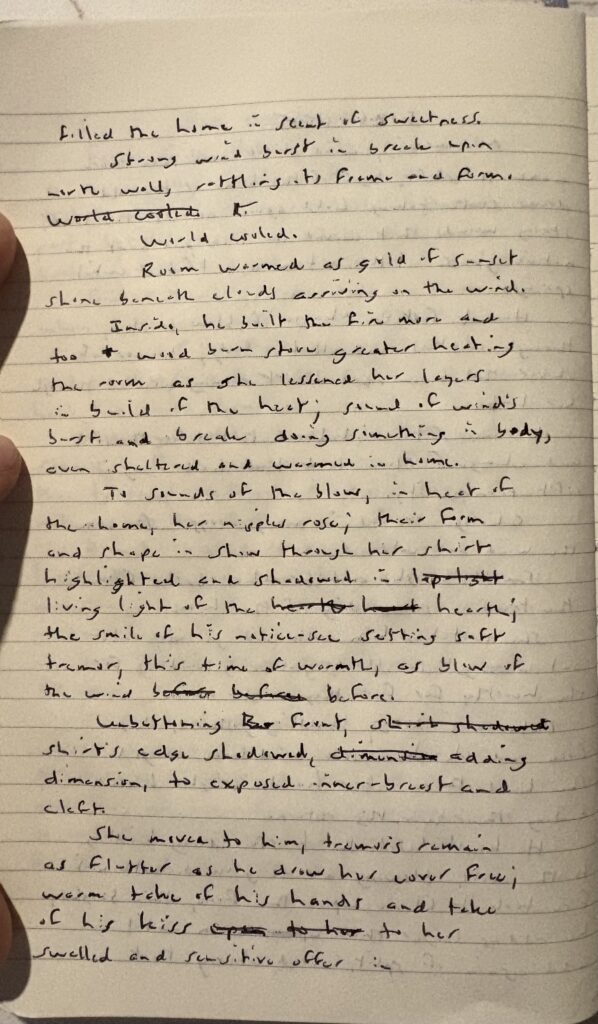 filled the home in scent of sweetness.
Strong wind burst in break upon
north wall, rattling its frame and form.
World cooled. It.
World cooled.
Room warmed as gold of sunset
shone beneath clouds arriving on the wind.
Inside, he built the fire more and
too wood burn stove greater heating
the room as she lessened her layers
in build of the heat; sound of wind's
burst and break doing something in body,
even sheltered and warmed in home.
To sounds of the blow, in heat of
the home, her nipples rose; their form
and shape in show through her shirt
highlighted and shadowed in lamplight
living light of the hearth heart hearth;
the smile of his notice-see setting soft
tremor, this time of warmth, as blow of
the wind before before before.
Unbuttoning front, shirt shadowed
shirt's edge shadowed, dimension adding
dimension, to exposed inner-breast and
cleft.
She moved to him, tremors remain
as flutter as he drew her cover free;
warm take of his hands and take
of his kiss open to her to her
swelled and sensitive offer in